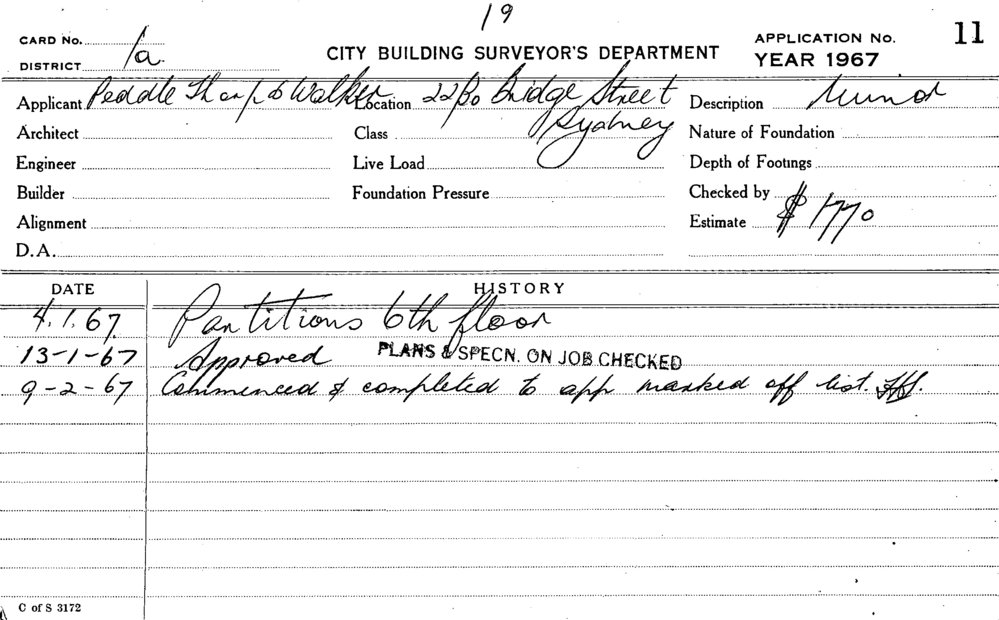 19
CARD No.
DISTRICT 1a.
CITY BUILDING SURVEYOR'S DEPARTMENT
APPLICATION No. 11
YEAR 1967
Applicant Peddle Thorp & Walker Location 22/30 Bridge Street Description
Sydney
Architect Class Nature of Foundation
Engineer Live Load Depth of Footings
Builder Foundation Pressure Checked by
Alignment Estimate $1770
D.A.
DATE HISTORY
4.1.67. Partitions 6th floor
13-1-67 Approved PLANS & SPECN. ON JOB CHECKED
9-2-67 Commenced & completed to app marked off list.
C of S 3172